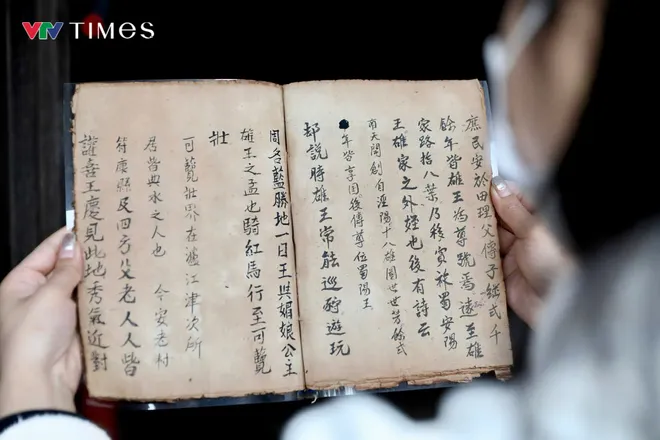 VTV TIMES
庶民安於田理父傳子継式千
餘年皆雄王為尊號焉遠至雄
家路指八葉乃移實放蜀安陽
王雄家之外姪也後有詩云
南天開創自涇陽十八雄圖世世芳餘式
年皆享囯後傳尊位蜀陽王
却說時雄王常能巡狩遊玩
周各藍勝地一日王與媚娘公主
雄王之孟也騎紅馬行至可覽
壯
可覽壯界在江津次所
居皆興水之人也 令安老村
符虞縣及四方父老人人皆
謹喜王慶見此地秀氣近對